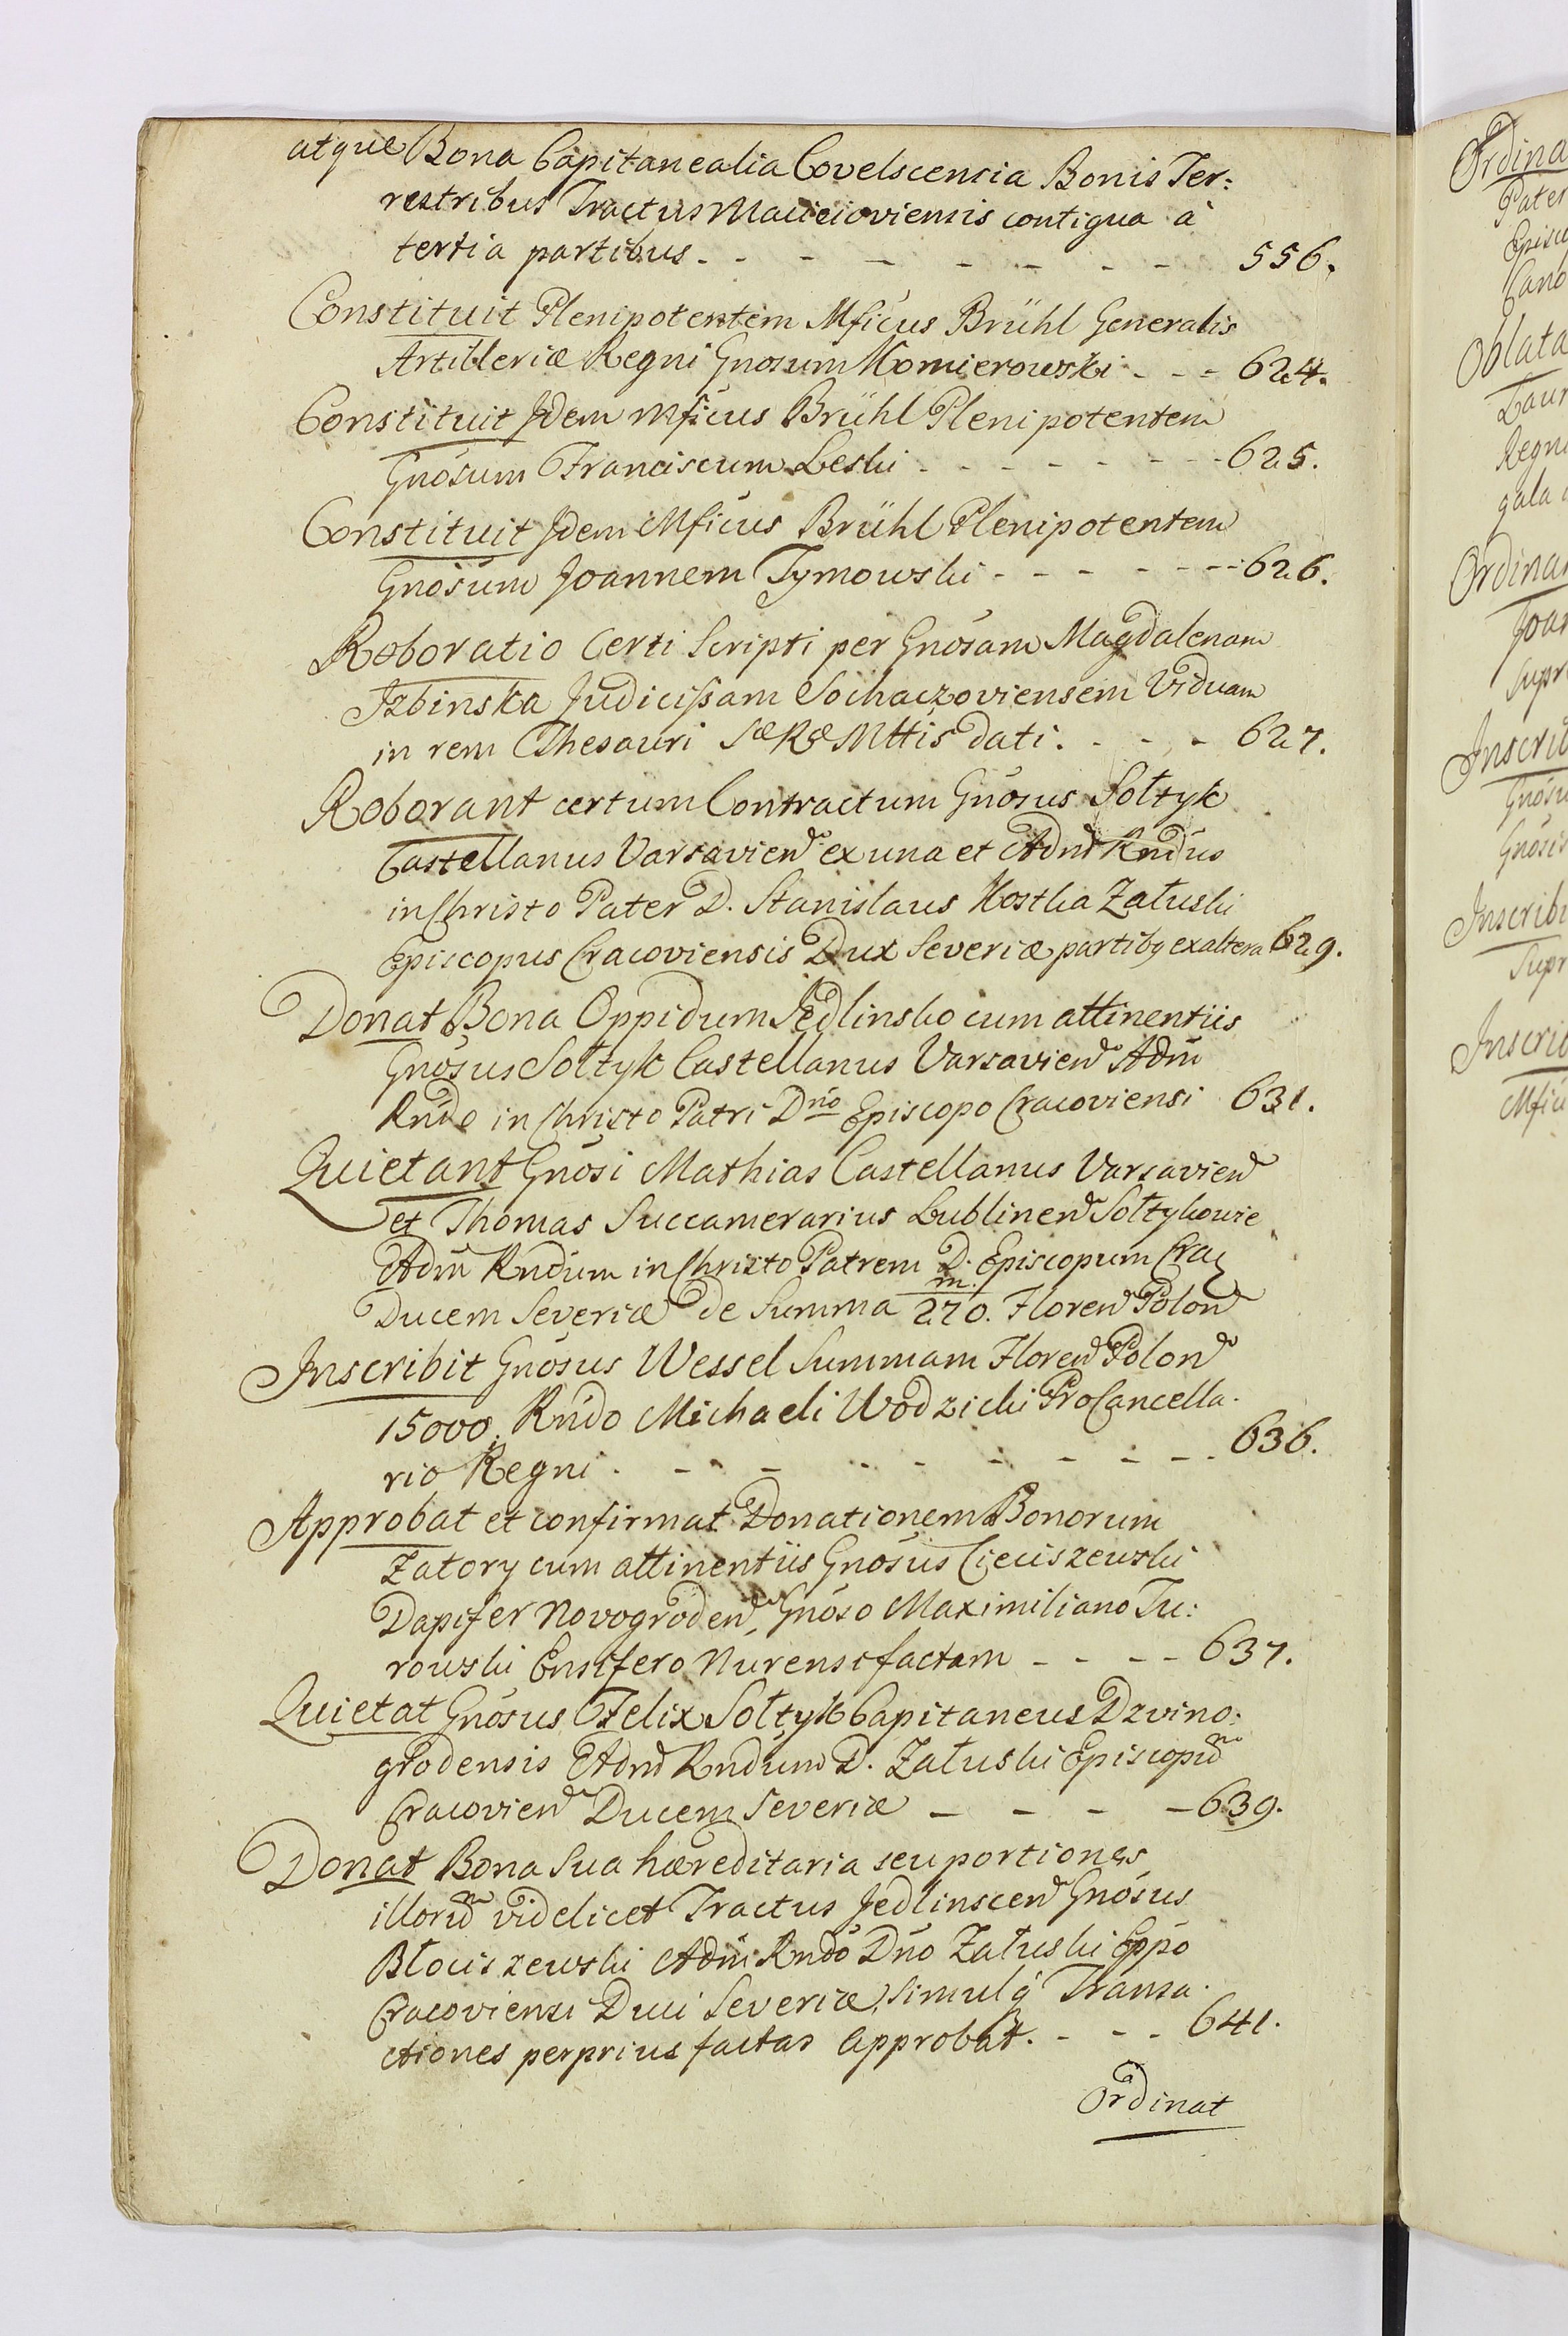 atque Bona Capitanealia Covelscensia Bonis Ter:
restribus Tractus Macieioviensis contigua à
tertia partibus - - - - - - - 556.
Constituit Plenipotentem Mficus Brühl Generalis
Artilleriæ Regni Gnosum Komierowski - - - 624.
Constituit Idem Mficus Brühl Plenipotentem
Gnosum Franciscum Leski - - - - - - - 625.
Constituit Idem Mficus Brühl Plenipotentem
Gnosum Joannem Tymowski - - - - - - - 626.
Roboratio Certi Scripti per Gnosam Magdalenam
Izbinska Judicissam Sochaczoviensem Viduam
in rem Thesauri Sæ Ræ Mttis dati. - - - 627.
Roborant certum Contractum Gnosus Sołtyk
Castellanus Varsavien ex una et Adm Rndus
in Christo Pater D. Stanislaus Kostka Załuski
Episcopus Cracoviensis Dux Severiæ partibq exaltera 629.
Donat Bona Oppidum Jedlinsko cum attinentiis
Gnosus Sołtyk Castellanus Varsavien Adm
Rndo in Christo Patri Dno Episcopo Cracoviensi 631.
Quietant Gnosi Mathias Castellanus Varsavien
et Thomas Succamerarius Lublinen Sołtykowie
Adm Rndum in Christo Patrem D. Episcopum Crac
Ducem Severiæ de Summa 270.m Floren Polon
Inscribit Gnosus Wessel Summam Floren Polon
15000. Rndo Michaeli Wodzicki ProCancella-
rio Regni - - - - - - - - - 636.
Approbat et confirmat Donationem Bonorum
Zatory cum attinentiis Gnosus Cieciszewski
Dapifer Novogroden, Gnoso Maximiliano Tu:
rowski Ensifero Nurensi factam - - - - 637.
Quietat Gnosus Felix Sołtyk Capitaneus Dzvino:
grodensis Adm Rndum D. Załuski Episcopum
Cracovien Ducem Severiæ - - - - 639.
Donat Bona Sua hæreditaria seu portiones
illorum videlicet Tractus Jedlinscen Gnosus
Błociszewski Adm Rndo Dno Załuski Eppo
Cracoviensi Duci Severiæ, simulq Transa-
ctiones perprius factas approbat. - - - 641.
Ordinat
Ordina
Pater
Episc
Cano
Oblata
Laur
Regn
gala
Ordina
Joan
Supr
Inscrib
Gnosu
Gnosis
Inscribi
Supr
Inscrib
Mficu